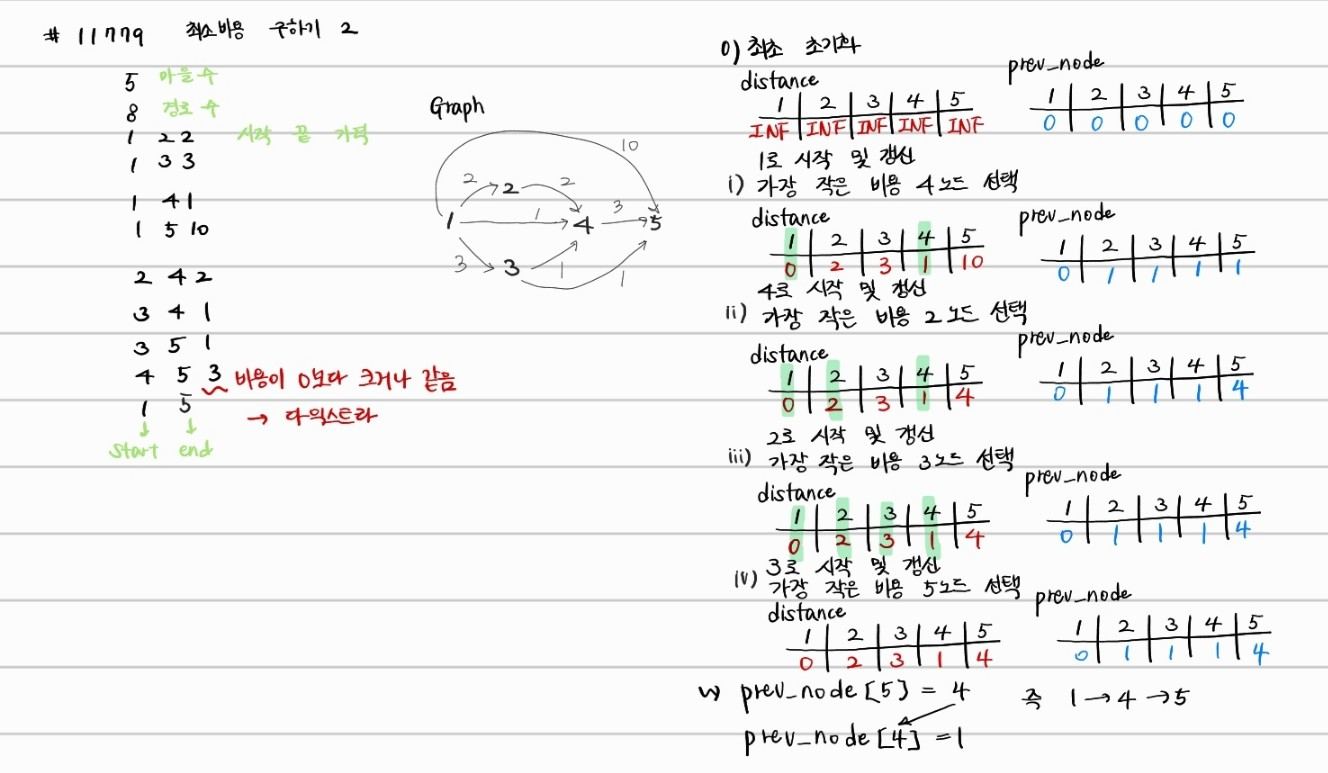 # 11779 최소비용 구하기 2
5 마을 수
8 경로 수
1 2 2 시작 끝 가격
1 3 3
1 4 1
1 5 10
2 4 2
3 4 1
3 5 1
4 5 3 비용이 0보다 크거나 같음
1 5 → 다익스트라
↓ ↓
start end
Graph
10
2 2 2
1 1 4 3 5
3 3 1 1
0) 최초 초기화
distance prev_node
1 2 3 4 5 1 2 3 4 5
INF INF INF INF INF 0 0 0 0 0
1로 시작 및 갱신
i) 가장 작은 비용 4노드 선택
distance prev_node
1 2 3 4 5 1 2 3 4 5
0 2 3 1 10 0 1 1 1 1
4로 시작 및 갱신
ii) 가장 작은 비용 2노드 선택
distance prev_node
1 2 3 4 5 1 2 3 4 5
0 2 3 1 4 0 1 1 1 4
2로 시작 및 갱신
iii) 가장 작은 비용 3노드 선택
distance prev_node
1 2 3 4 5 1 2 3 4 5
0 2 3 1 4 0 1 1 1 4
3로 시작 및 갱신
iv) 가장 작은 비용 5노드 선택
distance prev_node
1 2 3 4 5 1 2 3 4 5
0 2 3 1 4 0 1 1 1 4
prev_node[5] = 4 즉 1→4→5
prev_node[4] = 1